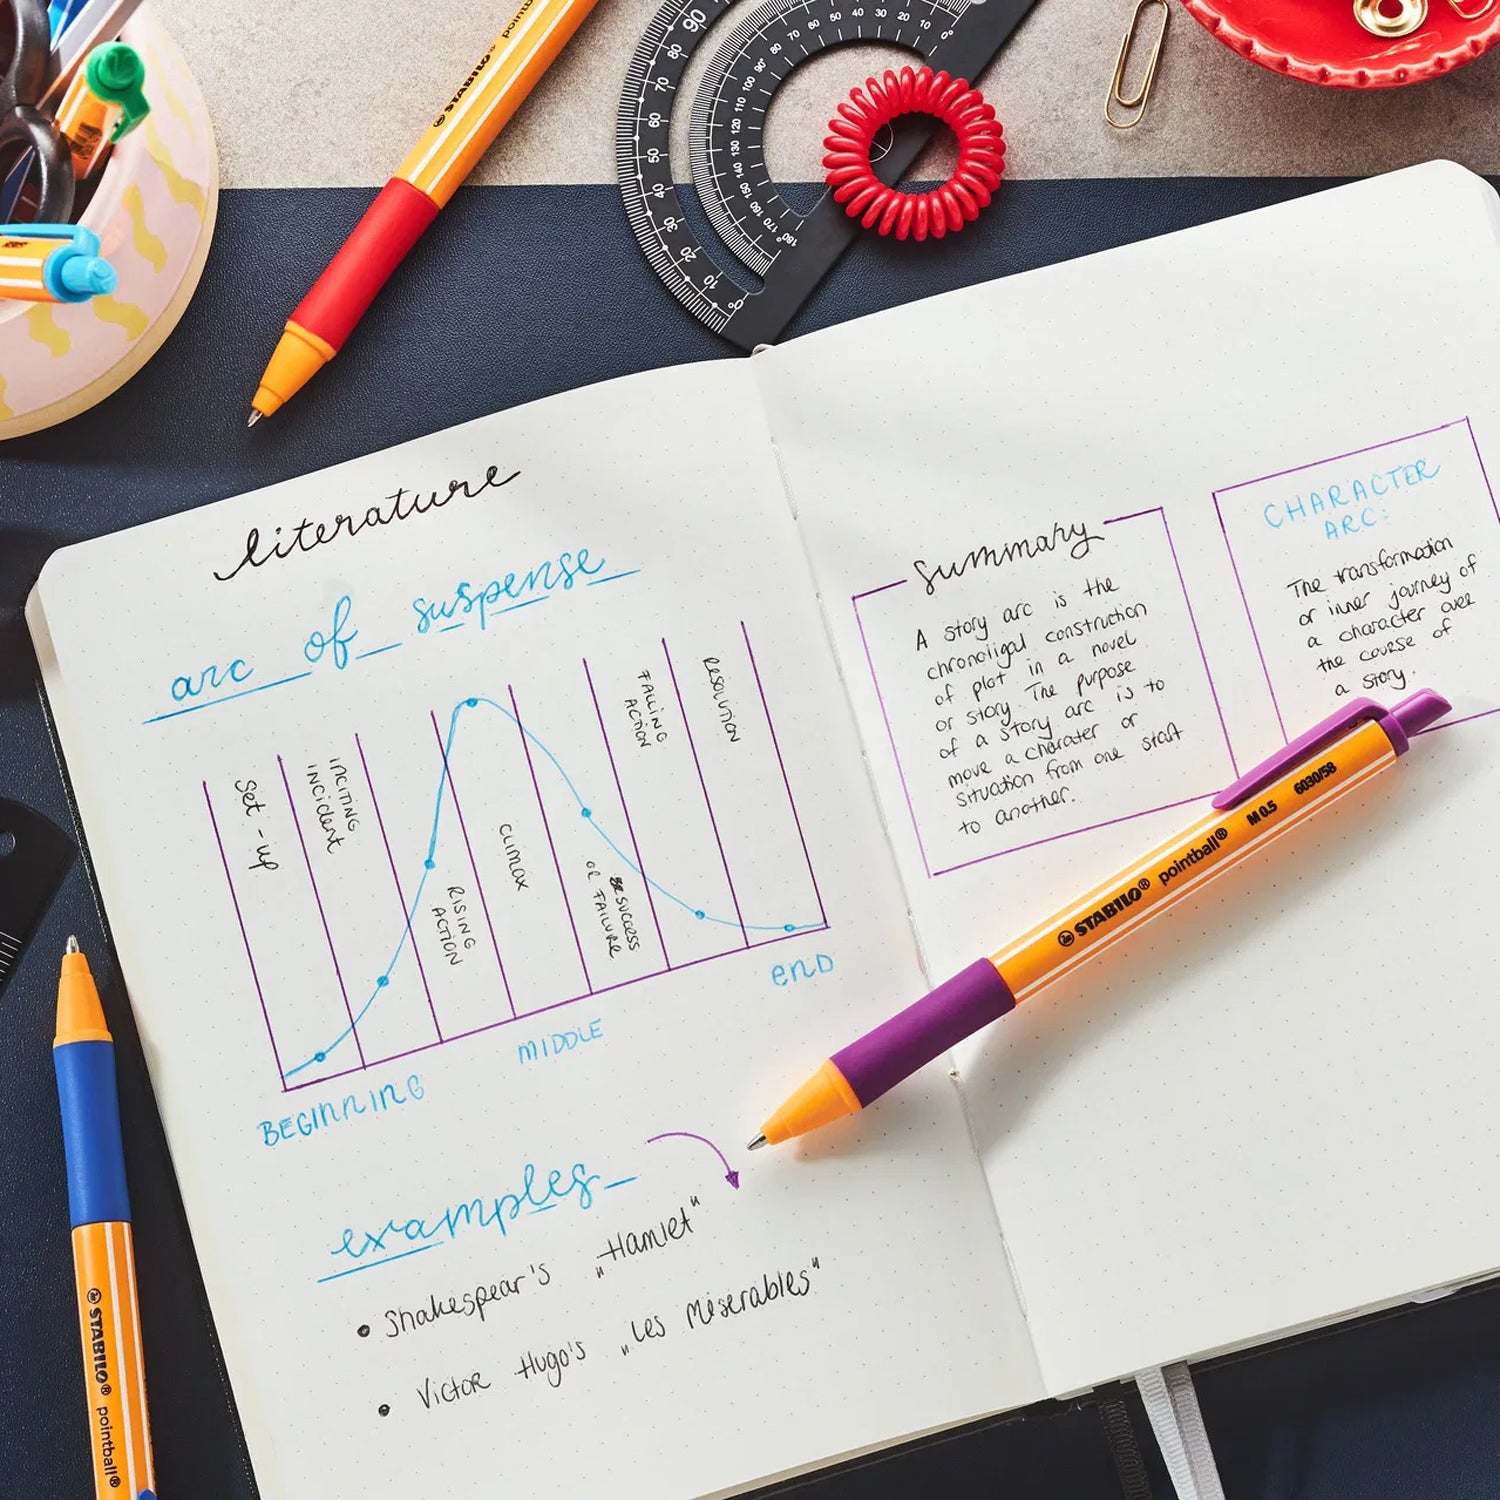 STABILO® point
90 80 70 60 50 40 30 20 10 0°
0° 10 20 30 40 50 60 70 80 90° 100 110 120 130 140 150 160 170 180°
literature
arc of suspense
Set-up
INCITING
INCIDENT
RISING
ACTION
CLIMAX
SUCCESS
OR FAILURE
FALLING
ACTION
RESOLUTION
BEGINNING
MIDDLE
END
examples
• Shakespear's „Hamlet"
• Victor Hugo's „Les Miserables"
summary
A story arc is the
chronoligal construction
of plot in a novel
or story. The purpose
of a story arc is to
move a charater or
situation from one statt
to another.
CHARACTER
ARC:
The transformation
or inner journey of
a character over
the course of
a story.
STABILO® pointball® M 0.5 6030/58
STABILO® pointball®